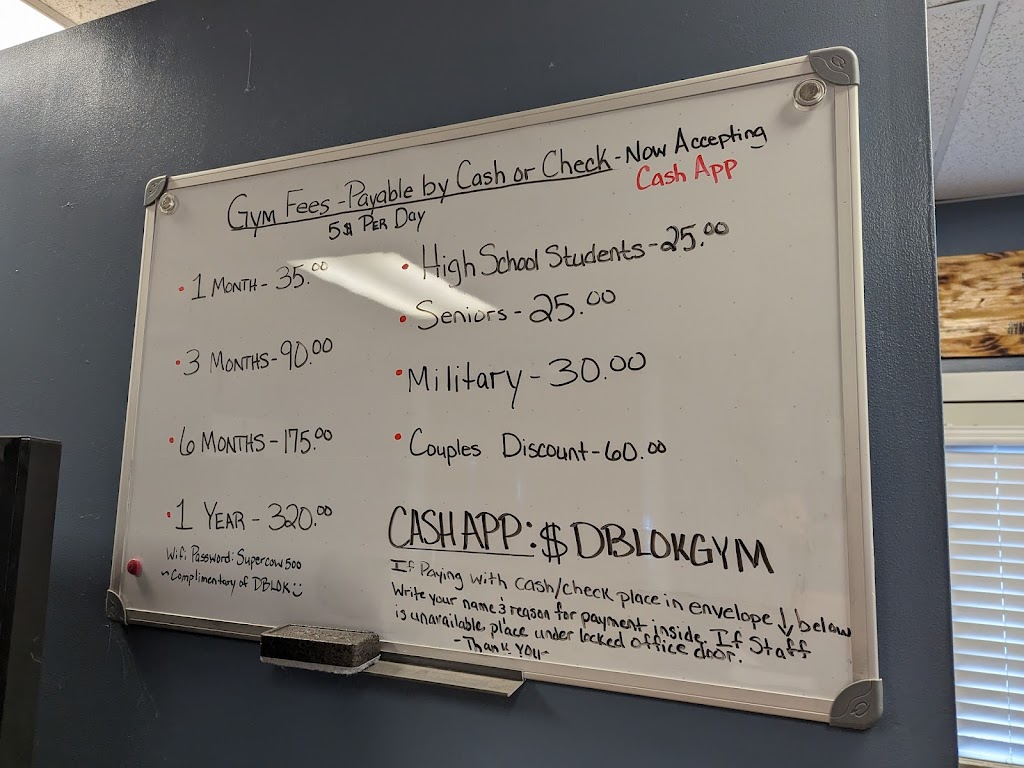 Gym Fees - Payable by Cash or Check - Now Accepting
Cash App
5$ Per Day
• 1 Month - 35.00
• 3 Months - 90.00
• 6 Months - 175.00
• 1 Year - 320.00
Wifi Password: Supercow500
~ Complimentary of DBLOK
• High School Students - 25.00
• Seniors - 25.00
• Military - 30.00
• Couples Discount - 60.00
CASH APP: $DBLOKGYM
If Paying with cash/check place in envelope ↓ below
Write your name & reason for payment inside. If Staff
is unavailable, place under locked office door.
- Thank you -